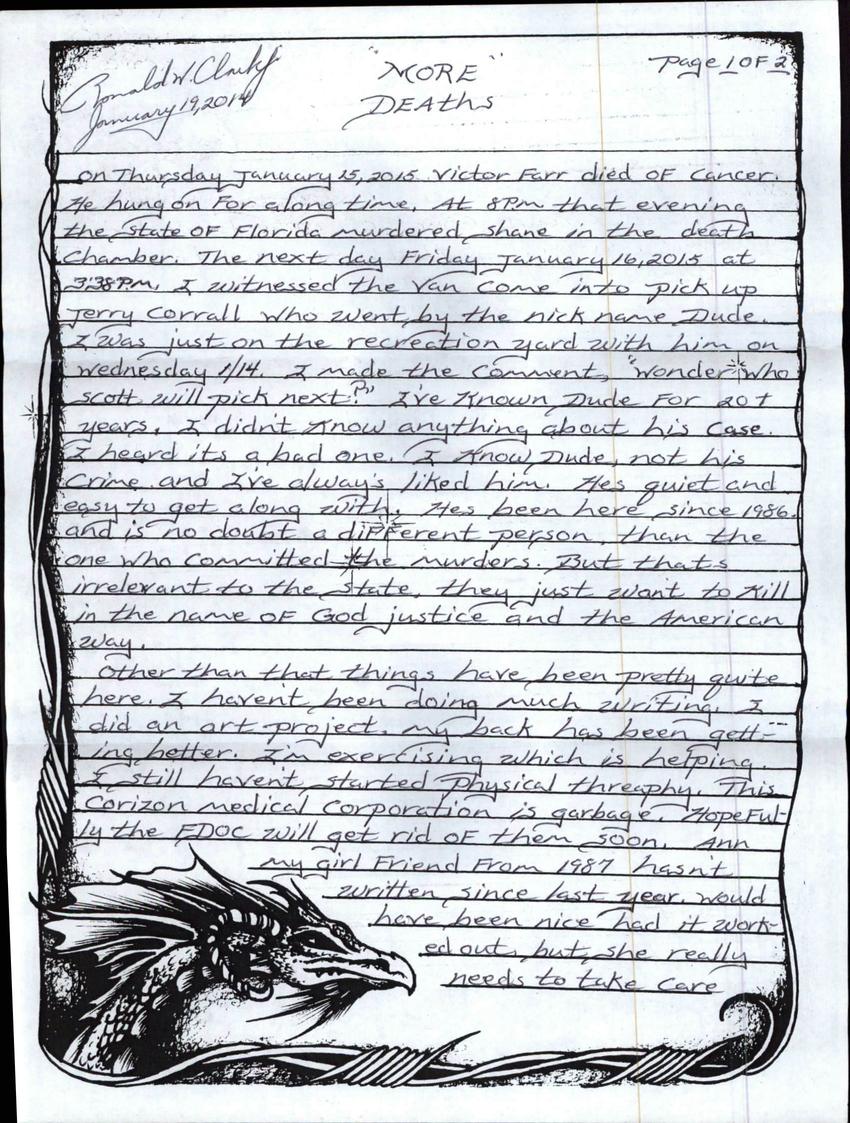 Ronald W. Clark Jr
January 19, 2014
"MORE"
DEAths
Page 1 OF 2
on Thursday January 15, 2015 Victor Farr died OF Cancer.
He hung on For along time. At 8Pm that evening
the state OF Florida murdered shane in the death
Chamber. The next day Friday January 16, 2015 at
3:38 Pm. I witnessed the van come into pick up
Jerry Corrall who went by the nick name Dude.
I was just on the recreation yard with him on
wednesday 1/14. I made the comment, "wonder who
scott will pick next?" I've Known Dude For 20+
years. I didn't Know anything about his case.
I heard its a bad one. I Know Dude, not his
Crime and I've always liked him. Hes quiet and
easy to get along with. Hes been here since 1986.
and is no doubt a diFFerent person, than the
one who committed the murders. But thats
irrelevant to the state, they just want to Kill
in the name OF God justice and the American
way.
Other than that things have been pretty quite
here. I haven't been doing much writing. I
did an art project. my back has been gett-
ing better. I'm exercising which is helping.
I still haven't started Physical threaphy. This
Corizon medical Corporation is garbage. HopeFul-
ly the FDOC will get rid OF them soon. Ann
my girl Friend From 1987 hasn't
written since last year. would
have been nice had it work-
ed out, but, she really
needs to take care